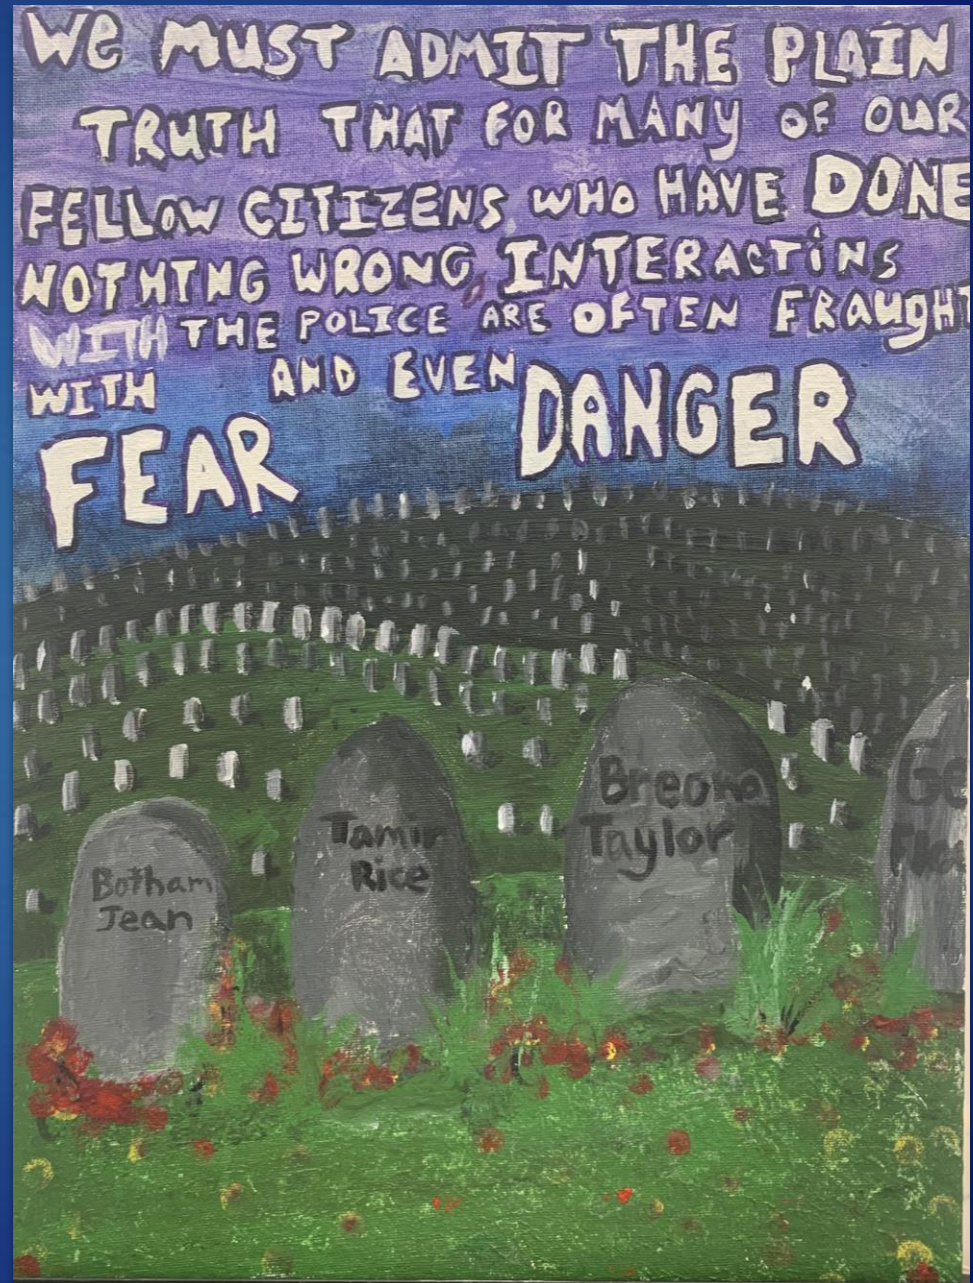 We MUST ADMIT THE PLAIN
TRUTH THAT FOR MANY OF OUR
FELLOW CITIZENS, WHO HAVE DONE
NOTHING WRONG, INTERACTiNS
WITH THE POLICE ARE OFTEN FRAUGHT
WITH AND EVEN DANGER
FEAR
Botham
Jean
Tamir
Rice
Breona
Taylor